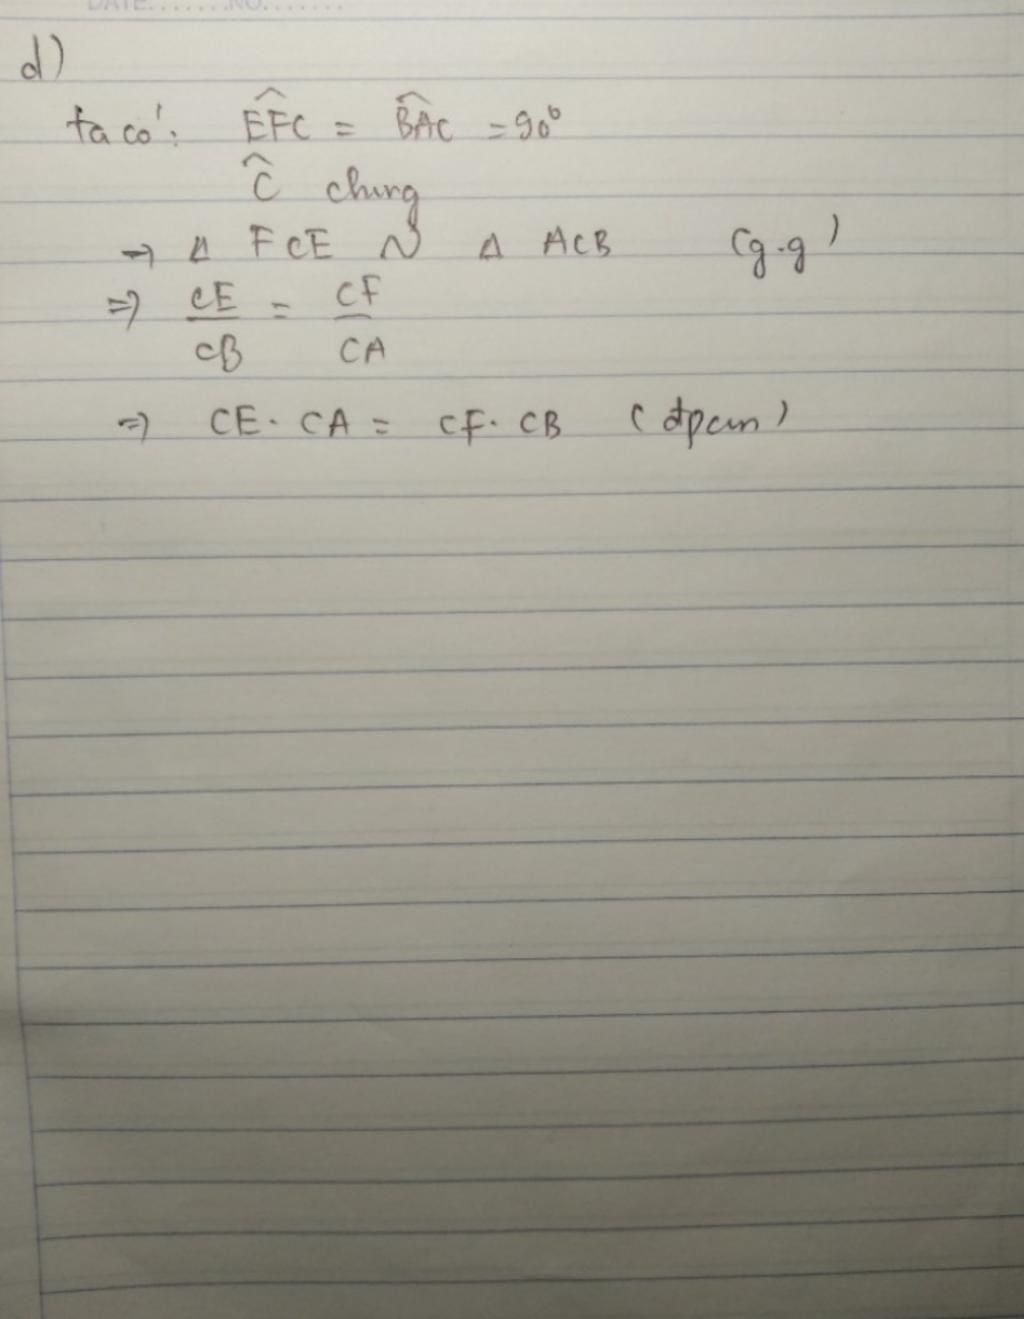 DATE.......NO.......
d)
ta có: \widehat{EFC} = \widehat{BAC} = 90⁰
\widehat{C} chung
→ Δ FCE ∽ Δ ACB (g.g)
=> CE/CB = CF/CA
=> CE. CA = CF. CB (đpcm)